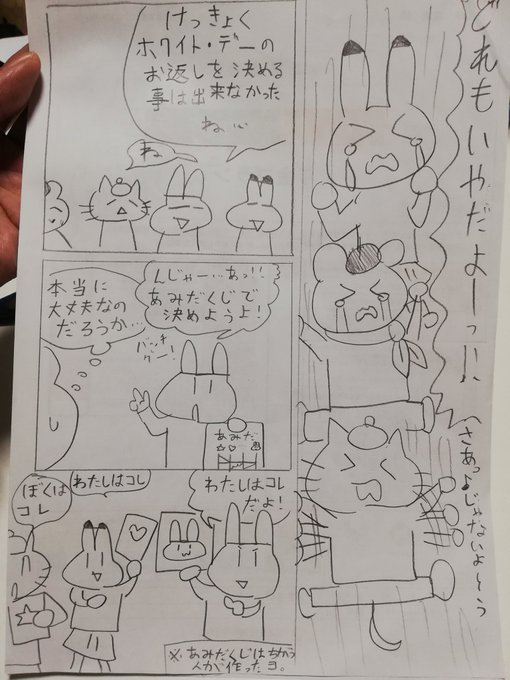 どれもいやだよーっ!!
さあっ♪じゃないよーぅ
けっきょく
ホワイト・デーの
お返しを決める
事は出来なかった
ね…
ね
んじゃー…あっ!!
あみだくじで
決めようよ!
あみだ
本当に
大丈夫なの
だろうか…
わたしはコレ
だよ!
わたしはコレ
ぼくは
コレ
※あみだくじはちがう
人が作ったヨ。